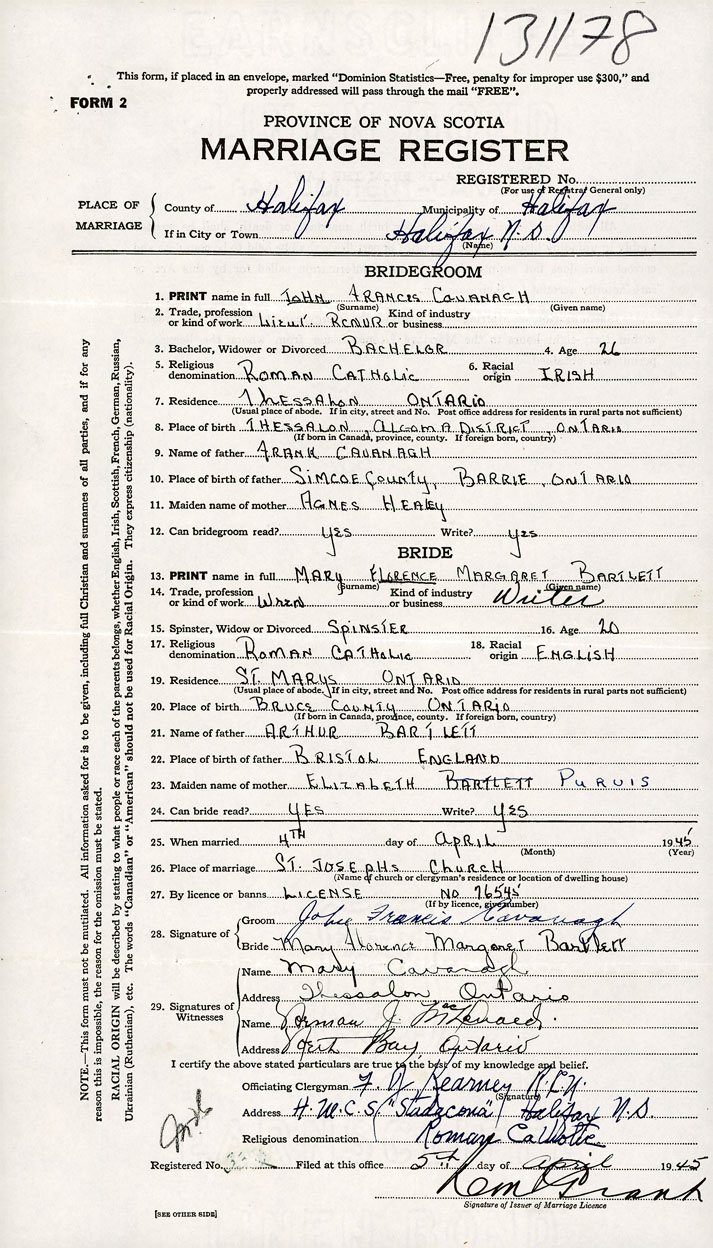 131178
This form, if placed in an envelope, marked “Dominion Statistics—Free, penalty for improper use $300,” and
properly addressed will pass through the mail “FREE”.
FORM 2
PROVINCE OF NOVA SCOTIA
MARRIAGE REGISTER
REGISTERED No.
(For use of Registrar General only)
PLACE OF MARRIAGE
County of Halifax Municipality of Halifax
If in City or Town Halifax N.S.
(Name)
BRIDEGROOM
1. PRINT name in full JOHN FRANCIS CAVANAGH
(Surname) (Given name)
2. Trade, profession or kind of work Lieut RCNVR Kind of industry or business
3. Bachelor, Widower or Divorced BACHELOR 4. Age 26
5. Religious denomination ROMAN CATHOLIC 6. Racial origin IRISH
7. Residence THESSALON ONTARIO
(Usual place of abode. If in city, street and No. Post office address for residents in rural parts not sufficient)
8. Place of birth THESSALON, ALGOMA DISTRICT, ONTARIO
(If born in Canada, province, county. If foreign born, country)
9. Name of father FRANK CAVANAGH
10. Place of birth of father SIMCOE COUNTY, BARRIE, ONTARIO
11. Maiden name of mother AGNES HEALEY
12. Can bridegroom read? YES Write? YES
BRIDE
13. PRINT name in full MARY FLORENCE MARGARET BARTLETT
(Surname) (Given name)
14. Trade, profession or kind of work Wren Kind of industry or business Writer
15. Spinster, Widow or Divorced SPINSTER 16. Age 20
17. Religious denomination ROMAN CATHOLIC 18. Racial origin ENGLISH
19. Residence ST. MARYS ONTARIO
(Usual place of abode. If in city, street and No. Post office address for residents in rural parts not sufficient)
20. Place of birth BRUCE COUNTY ONTARIO
(If born in Canada, province, county. If foreign born, country)
21. Name of father ARTHUR BARTLETT
22. Place of birth of father BRISTOL ENGLAND
23. Maiden name of mother ELIZABETH BARTLETT PURVIS
24. Can bride read? YES Write? YES
25. When married 4TH day of APRIL 1945
(Month) (Year)
26. Place of marriage ST. JOSEPHS CHURCH
(Name of church or clergyman's residence or location of dwelling house)
27. By licence or banns LICENSE NO 76545
(If by licence, give number)
28. Signature of
Groom John Francis Cavanagh
Bride Mary Florence Margaret Bartlett
29. Signatures of Witnesses
Name Mary Cavanagh
Address Thessalon Ontario
Name Norman J.
Address North Bay Ontario
I certify the above stated particulars are true to the best of my knowledge and belief.
Officiating Clergyman Kearney
(Signature)
Address H.M.C.S "Stadacona" Halifax N.S.
Religious denomination Roman Catholic
Registered No. Filed at this office 5th day of April 1945
Grant
Signature of Issuer of Marriage Licence
[SEE OTHER SIDE]
NOTE.—This form must not be mutilated. All information asked for is to be given, including full Christian and surnames of all parties, and if for any
reason this is impossible, the reason for the omission must be stated.
RACIAL ORIGIN will be described by stating to what people or race each of the parents belongs, whether English, Irish, Scottish, French, German, Russian,
Ukrainian (Ruthenian), etc. The words “Canadian” or “American” should not be used for Racial Origin. They express citizenship (nationality).